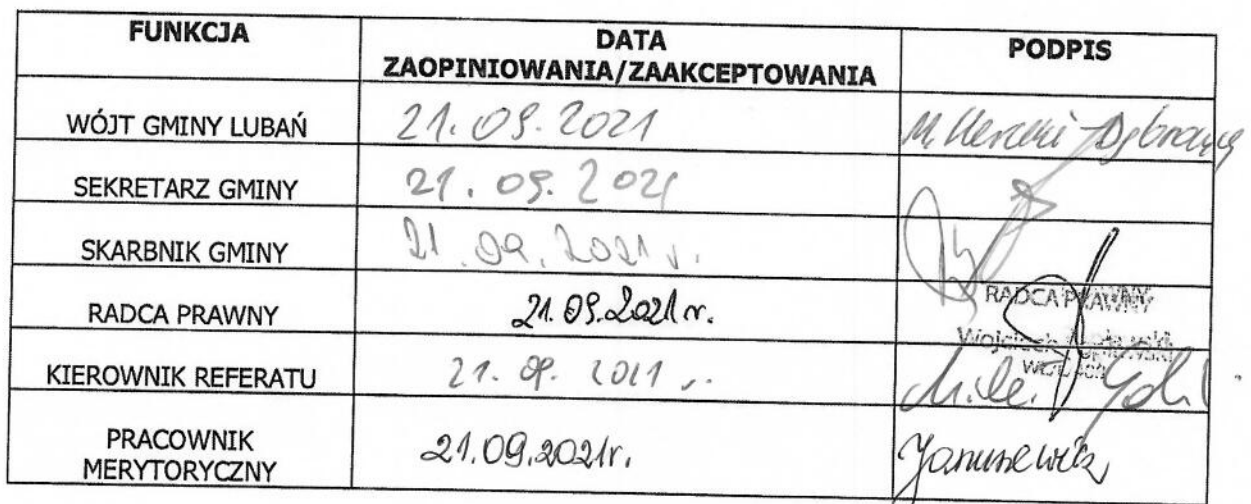 FUNKCJA
DATA
ZAOPINIOWANIA/ZAAKCEPTOWANIA
PODPIS
WÓJT GMINY LUBAŃ
21.09.2021
SEKRETARZ GMINY
21.09.2021
SKARBNIK GMINY
21.09.2021 r.
RADCA PRAWNY
21.09.2021 r.
RADCA PRAWNY
Wojciech
KIEROWNIK REFERATU
21.09.2021 r.
PRACOWNIK
MERYTORYCZNY
21.09.2021r.